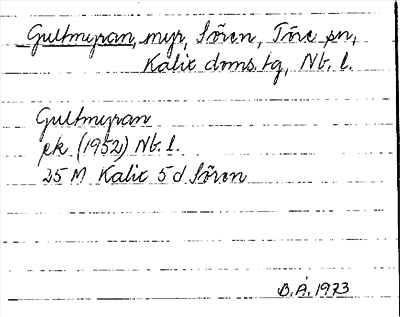 Gultmyran, myr, Sören, Töre sn,
Kalix doms. tg, Nb. l.
Gultmyran
ek. (1952) Nb. l.
25 M Kalix 5 d Sören
B.Å. 1973